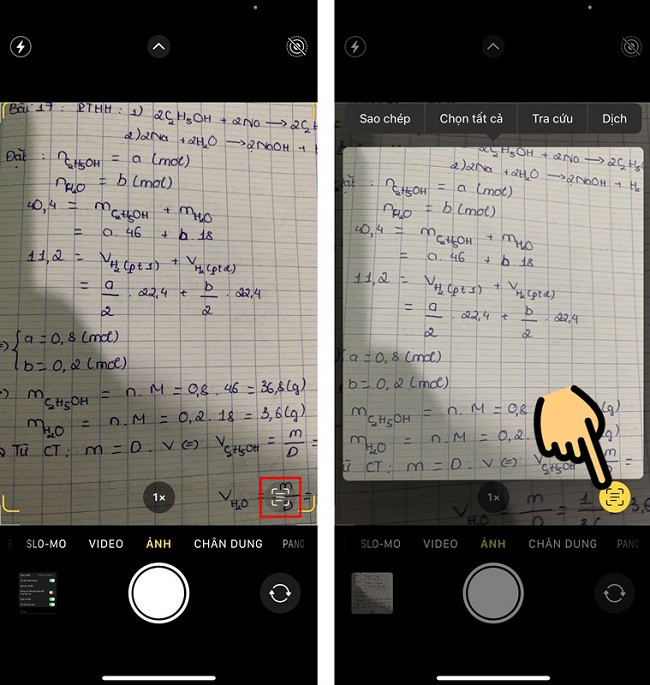 Bài 17: PTHH: 1) 2C₂H₅OH + 2Na → 2C₂H
2) 2Na + 2H₂O → 2NaOH + H
Đặt: n_C₂H₅OH = a (mol)
n_H₂O = b (mol)
40,4 = m_C₂H₅OH + m_H₂O
= a. 46 + b. 18
11,2 = V_H₂(pt1) + V_H₂(pt2)
= a/2 . 22,4 + b/2 . 22,4
=> { a = 0,8 (mol)
b = 0,2 (mol)
=> m_C₂H₅OH = n. M = 0,8. 46 = 36,8 (g)
m_H₂O = n. M = 0,2. 18 = 3,6 (g)
Từ CT: m = D. V (=) V_C₂H₅OH = m/D =
V_H₂O = m/D =
1x
SLO-MO VIDEO ẢNH CHÂN DUNG PANO
Sao chép Chọn tất cả Tra cứu Dịch
2C₂H₅OH + 2Na → 2C₂
2) 2Na + 2H₂O → 2NaOH + H₂
Đặt: n_C₂H₅OH = a (mol)
n_H₂O = b (mol)
40,4 = m_C₂H₅OH + m_H₂O
= a. 46 + b. 18
11,2 = V_H₂(pt1) + V_H₂(pt2)
= a/2 . 22,4 + b/2 . 22,4
{ a = 0,8 (mol)
b = 0,2 (mol)
m_C₂H₅OH = n. M = 0,8 (g)
m_H₂O = n. M = 0,2. (g)
Từ CT: m = D. V (=) V_C₂H₅OH =
V_H₂O = m/D = 3,6
1x
SLO-MO VIDEO ẢNH CHÂN DUNG PANO